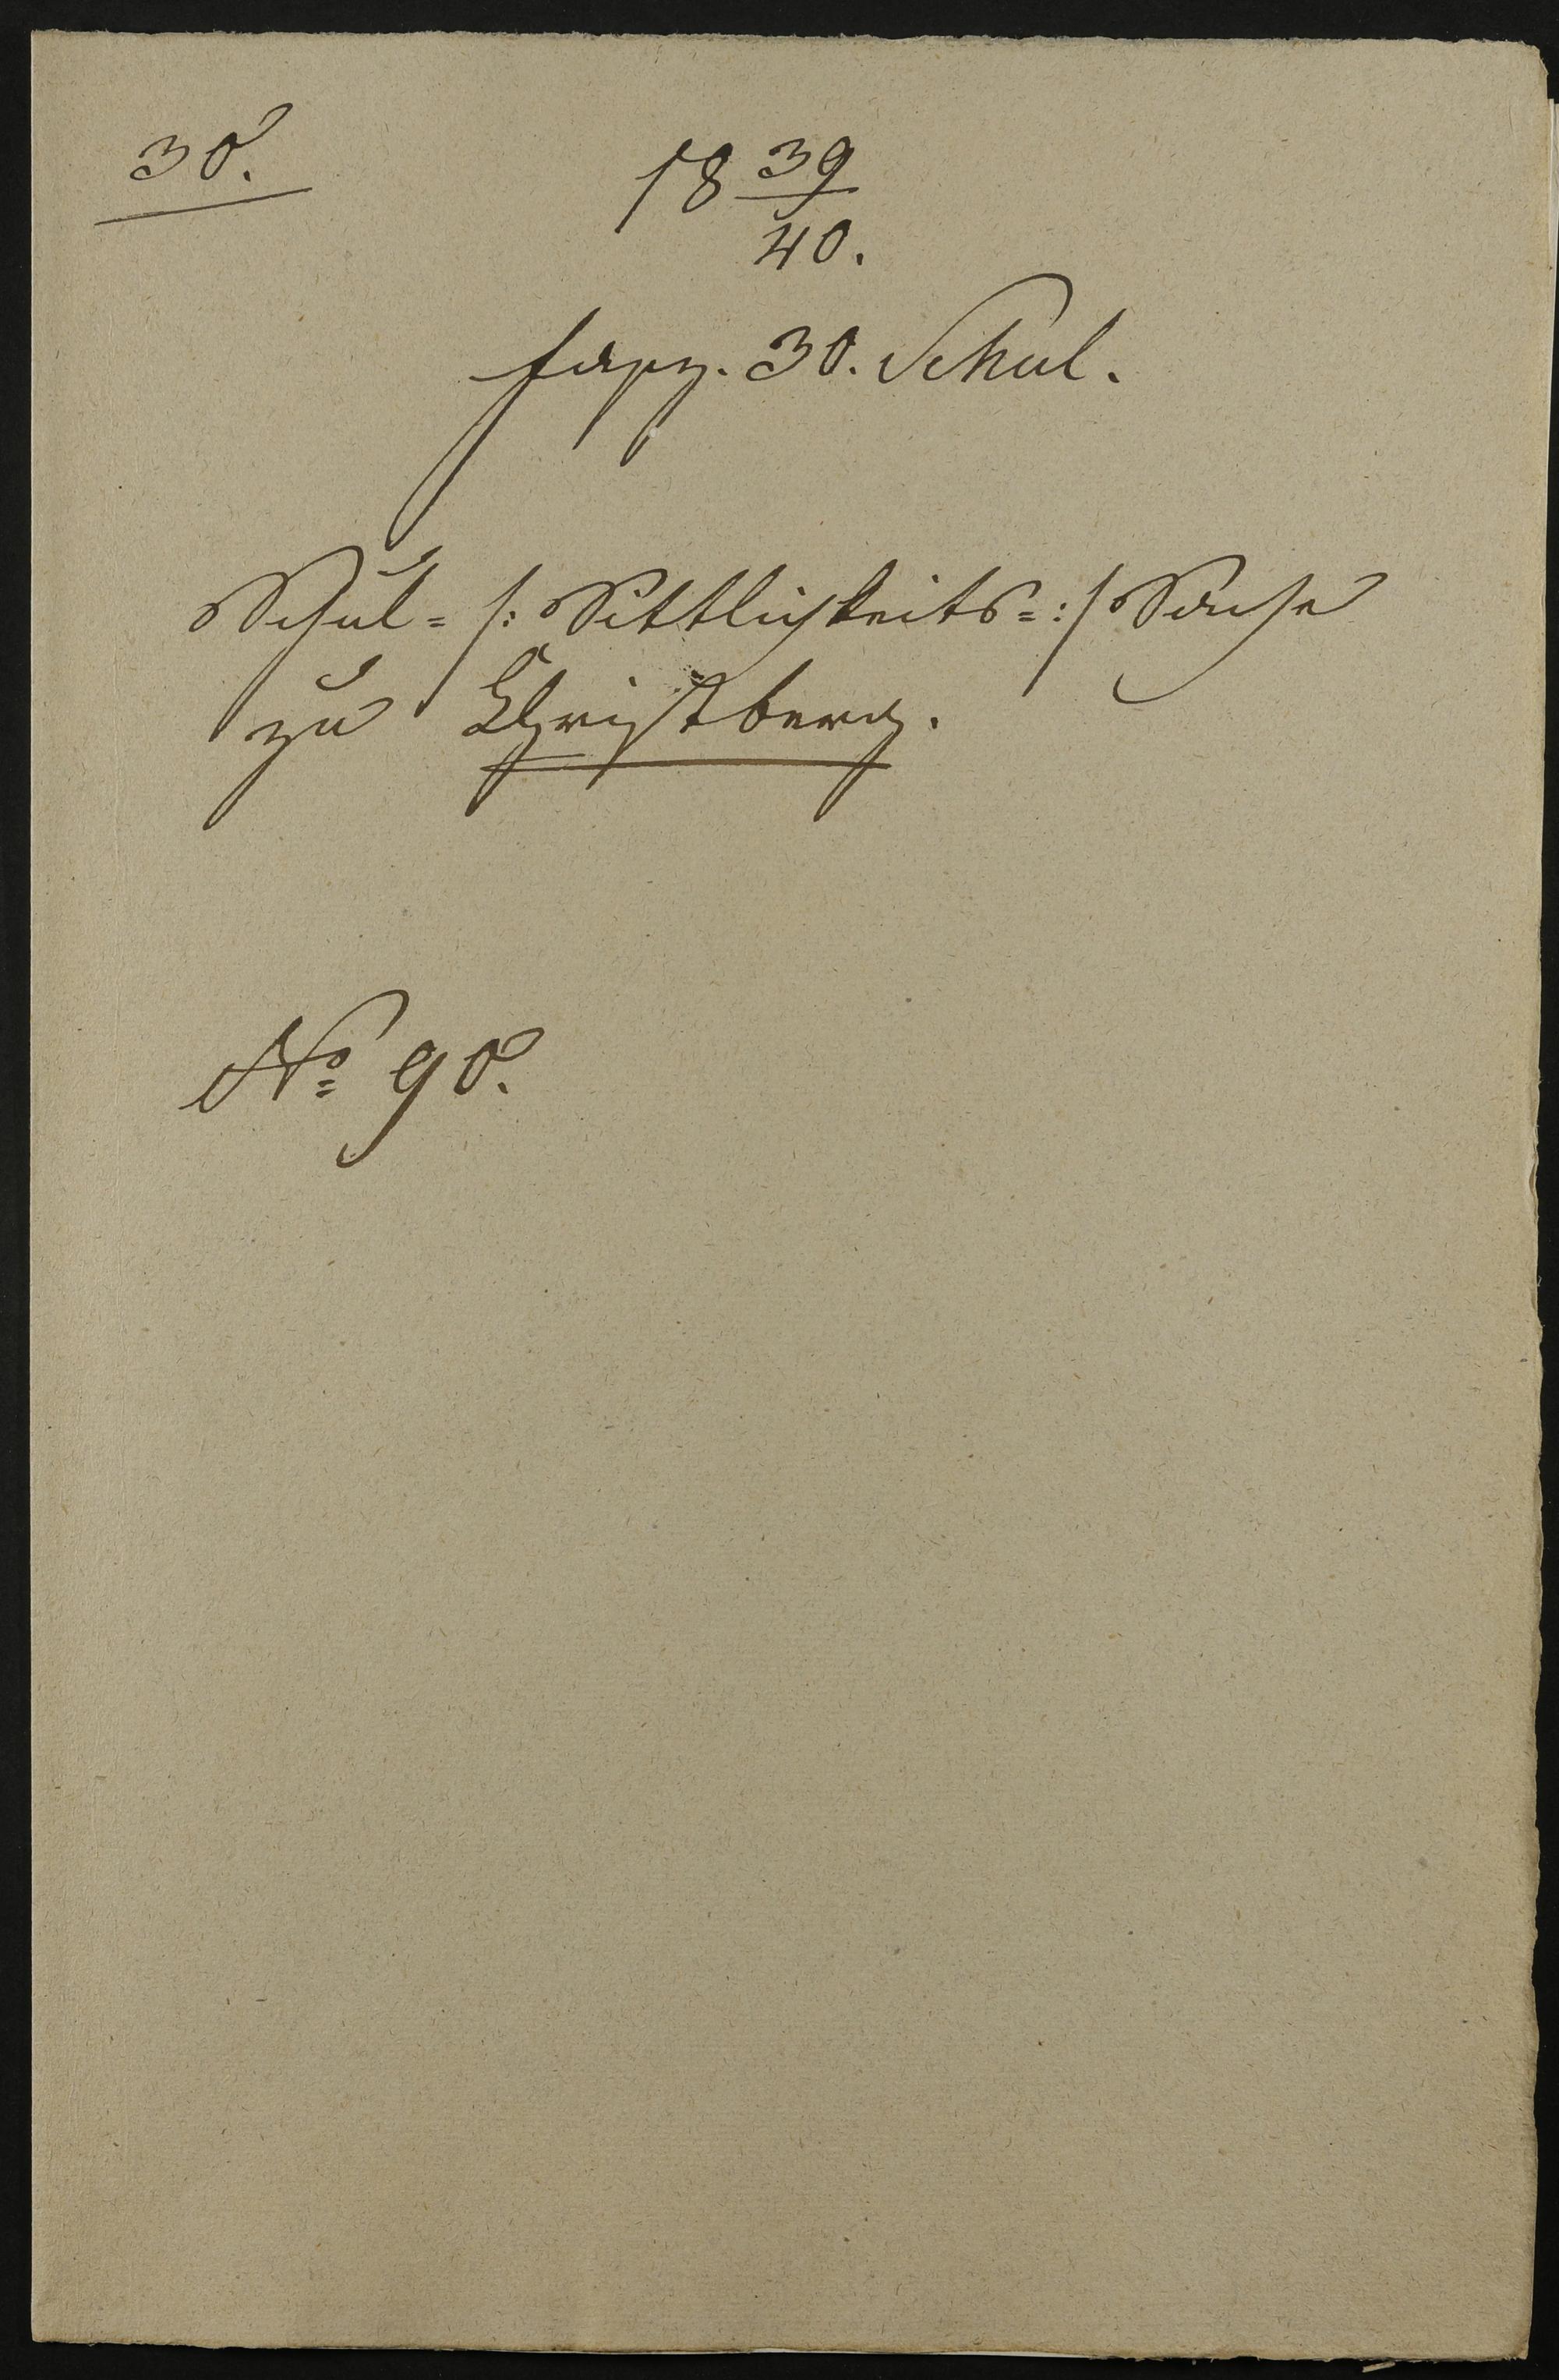 30.
18 39/40.
fasz. 30. Schul.
Schul- /: Sittlichkeits-:/ Sache
zu Christberg.
No 90.